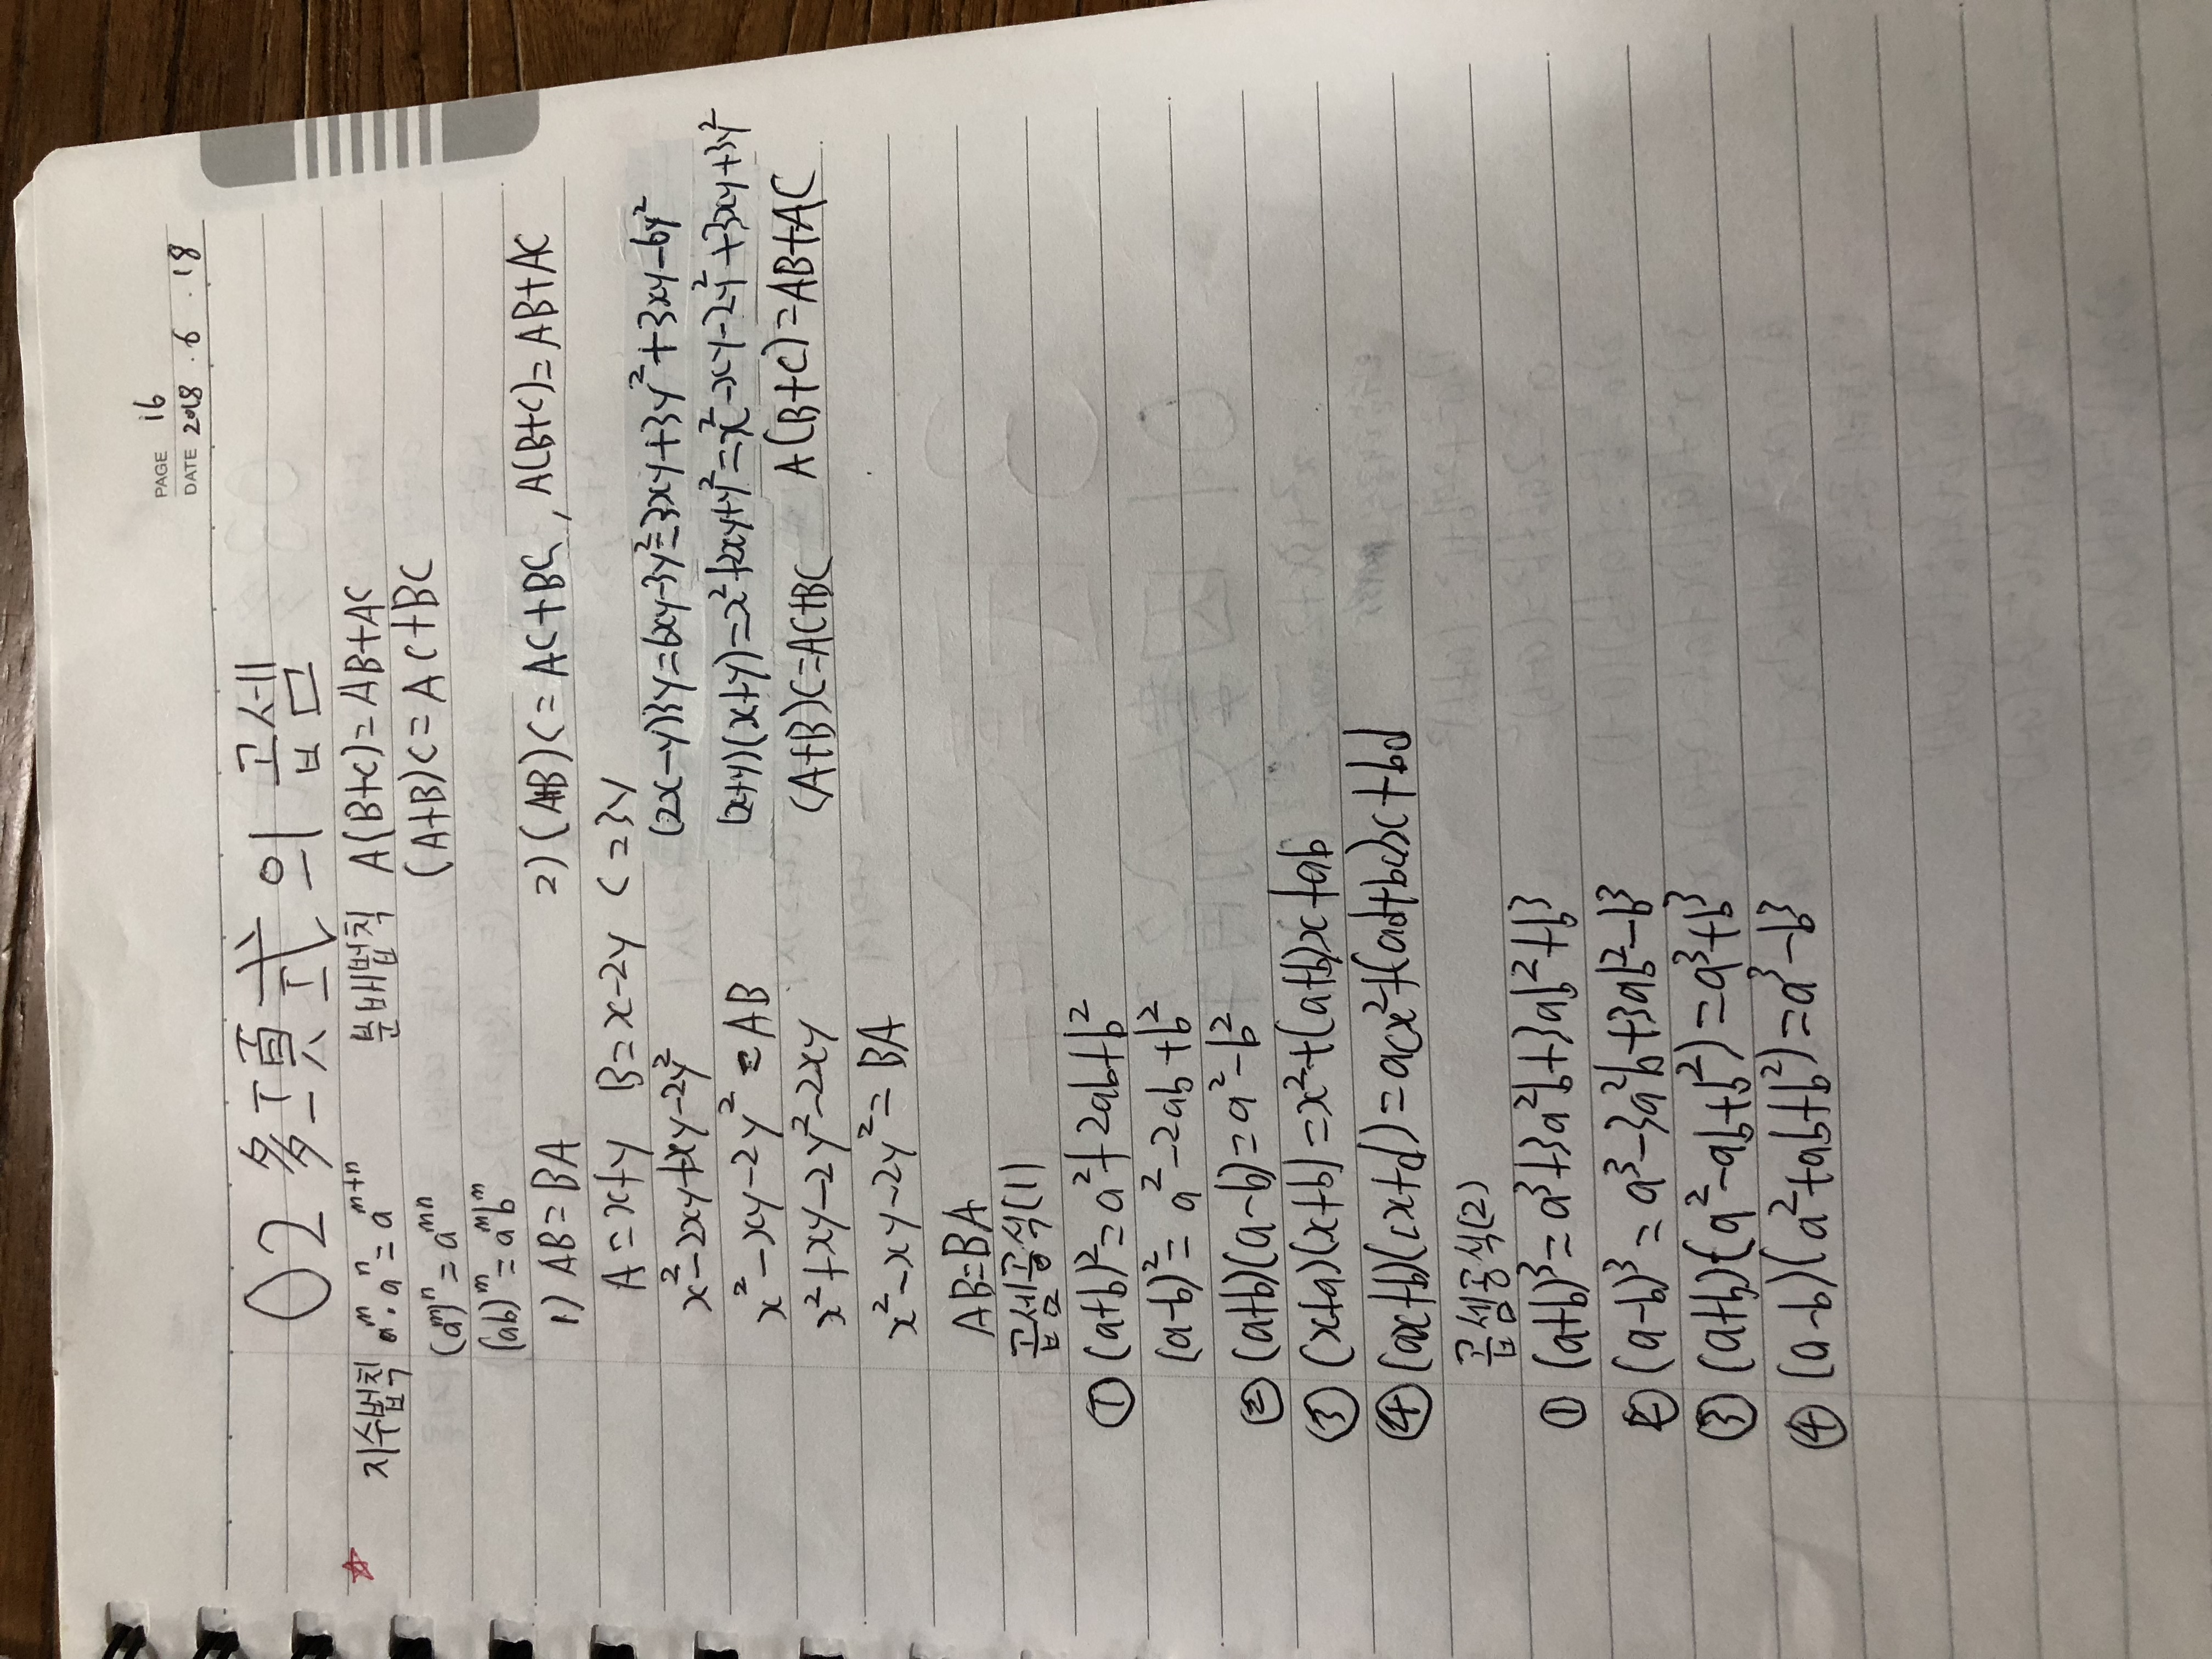 PAGE 16
DATE 2018 . 6 . 18
02 多項式의 곱셈
☆ 지수법칙 a^m · a^n = a^{m+n} 분배법칙 A(B+C)=AB+AC
(a^m)^n = a^{mn} (A+B)C = AC+BC
(ab)^m = a^m b^m
1) AB=BA 2) (A+B)C = AC+BC, A(B+C)=AB+AC
A=x+y B=x-2y C=3y
x²-2xy+xy-2y² (2x-y)3y=6xy-3y²=3xy+3y²+3xy-6y²
x²-xy-2y² = AB (x+y)(x+y)=x²+2xy+y²=x²-xy-2y²+3xy+3y²
x²+xy-2y²-2xy (A+B)C=AC+BC A(B+C)=AB+AC
x²-xy-2y²=BA
AB=BA
곱셈공식(1)
① (a+b)²=a²+2ab+b²
(a-b)²=a²-2ab+b²
② (a+b)(a-b)=a²-b²
③ (x+a)(x+b)=x²+(a+b)x+ab
④ (ax+b)(cx+d)=acx²+(ad+bc)x+bd
곱셈공식(2)
① (a+b)³=a³+3a²b+3ab²+b³
② (a-b)³=a³-3a²b+3ab²-b³
③ (a+b)(a²-ab+b²)=a³+b³
④ (a-b)(a²+ab+b²)=a³-b³